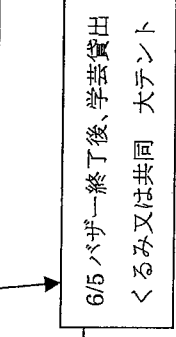 6/5 バザー終了後、学芸貸出
くるみ又は共同　大テント